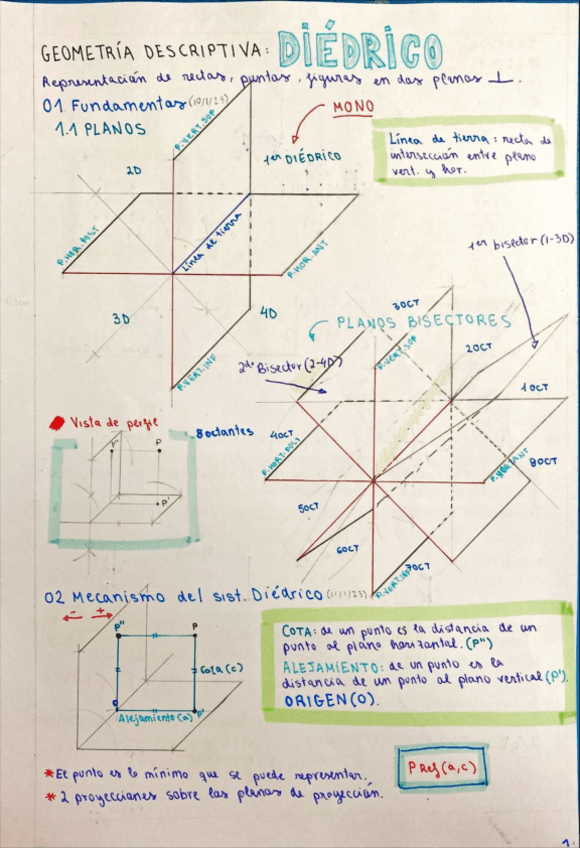 GEOMETRÍA DESCRIPTIVA: DIÉDRICO
Representación de rectas, puntos, figuras en dos planos ⊥.
01 Fundamentos (10/1/23)
1.1 PLANOS
MONO
1er DIÉDRICO
Línea de tierra: recta de
intersección entre plano
vert. y hor.
P.VERT.SUP
2D
P.HOR.POST
Línea de tierra
P.HOR.ANT
3D
4D
P.VERT.INF
1er bisector (1-3D)
PLANOS BISECTORES
2do Bisector (2-4D)
3OCT
P.VERT.SUP
2OCT
1OCT
4OCT
P.HORT.POST
P.HOR.ANT
8OCT
5OCT
6OCT
7OCT
P.VERT.INF
Vista de perfil
8 octantes
P"
P
P'
02 Mecanismo del sist. Diédrico (11/1/23)
- +
P"
P
Cota (c)
O
Alejamiento (a)
P'
COTA: de un punto es la distancia de un
punto al plano horizontal. (P")
ALEJAMIENTO: de un punto es la
distancia de un punto al plano vertical (P').
ORIGEN (O).
P Ref (a,c)
*El punto es lo mínimo que se puede representar.
* 2 proyecciones sobre los planos de proyección.
1.